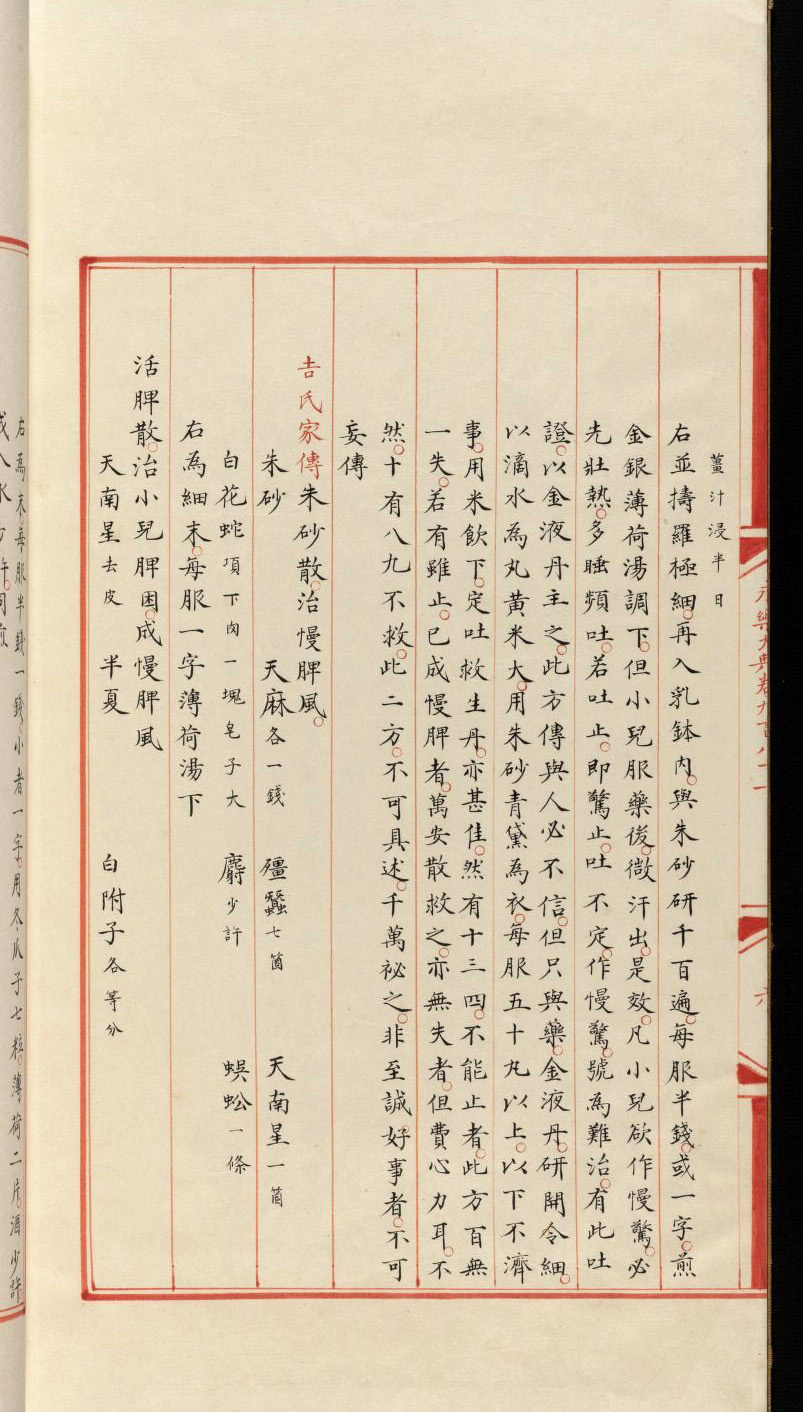 薑汁浸半日
右並擣羅極細。再入乳鉢内。與朱砂研千百遍。每服半錢。或一字。煎
金銀薄荷湯調下。但小兒服藥後。微汗出。是效。凡小兒欲作慢驚。必
先壯熱。多睡頻吐。若吐止。即驚止。吐不定。作慢驚。號為難治。有此吐
證。以金液丹主之。此方傳與人必不信。但只與藥。金液丹。研開令細。
以滴水為丸黄米大。用朱砂青黛為衣。每服五十丸以上。以下不濟
事。用米飲下。定吐救生丹。亦甚佳。然有十三四。不能止者。此方百無
一失。若有雖止。已成慢脾者。萬安散救之。亦無失者。但費心力耳。不
然。十有八九不救。此二方。不可具述。千萬祕之。非至誠好事者。不可
妄傳
吉氏家傳朱砂散。治慢脾風。
朱砂 天麻各一錢 殭蠶七箇 天南星一箇
白花蛇項下肉一塊皂子大 麝少許 蜈蚣一條
右為細末。每服一字薄荷湯下
活脾散。治小兒脾困。成慢脾風
天南星去皮 半夏 白附子各等分
右為末。每服半錢一錢。小者一字。用冬瓜子七粒。薄荷二片。酒少許
永樂大典卷九百八十一
六